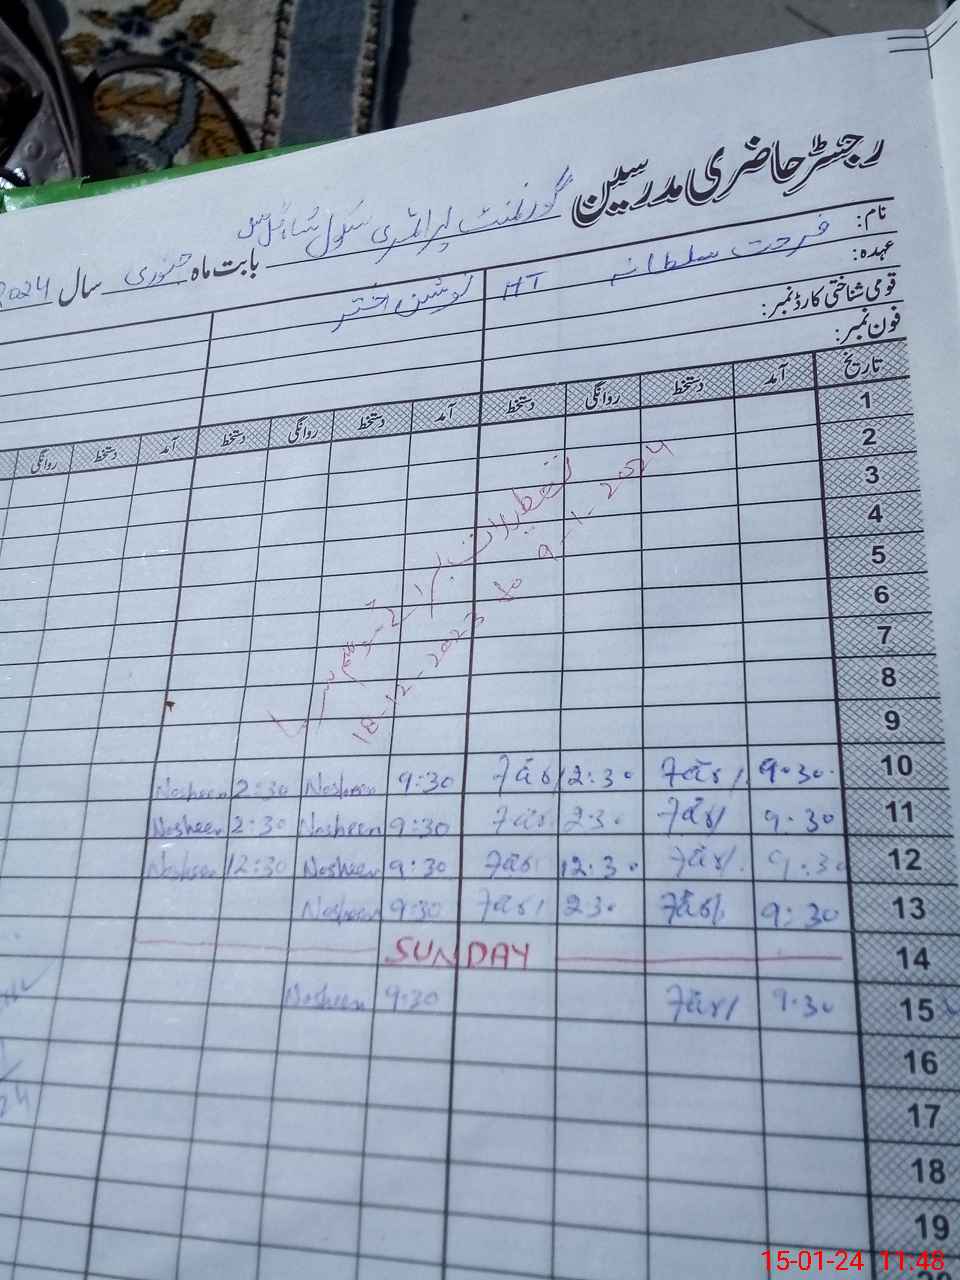 رجسٹر حاضری مدرسین گورنمنٹ پرائمری سکول
بابت ماہ جنوری سال 2024
نام: فرحت سلطانہ نوشین اختر
عہدہ: HT
قومی شناختی کارڈ نمبر:
فون نمبر:
تاریخ آمد دستخط روانگی دستخط آمد دستخط روانگی دستخط آمد دستخط روانگی
1
2
3
4
5
6
7
8
9
تعطیلات برائے موسم سرما
18-12-2023 تا 9-1-2024
10 9:30 2:30 9:30 Nosheen 2:30 Nosheen
11 9:30 2:30 9:30 Nosheen 2:30 Nosheen
12 9:30 12:30 9:30 Nosheen 12:30 Nosheen
13 9:30 2:30 9:30 Nosheen
14 SUNDAY
15 9:30 9:30 Nosheen
16
17
18
19
15-01-24 11:48